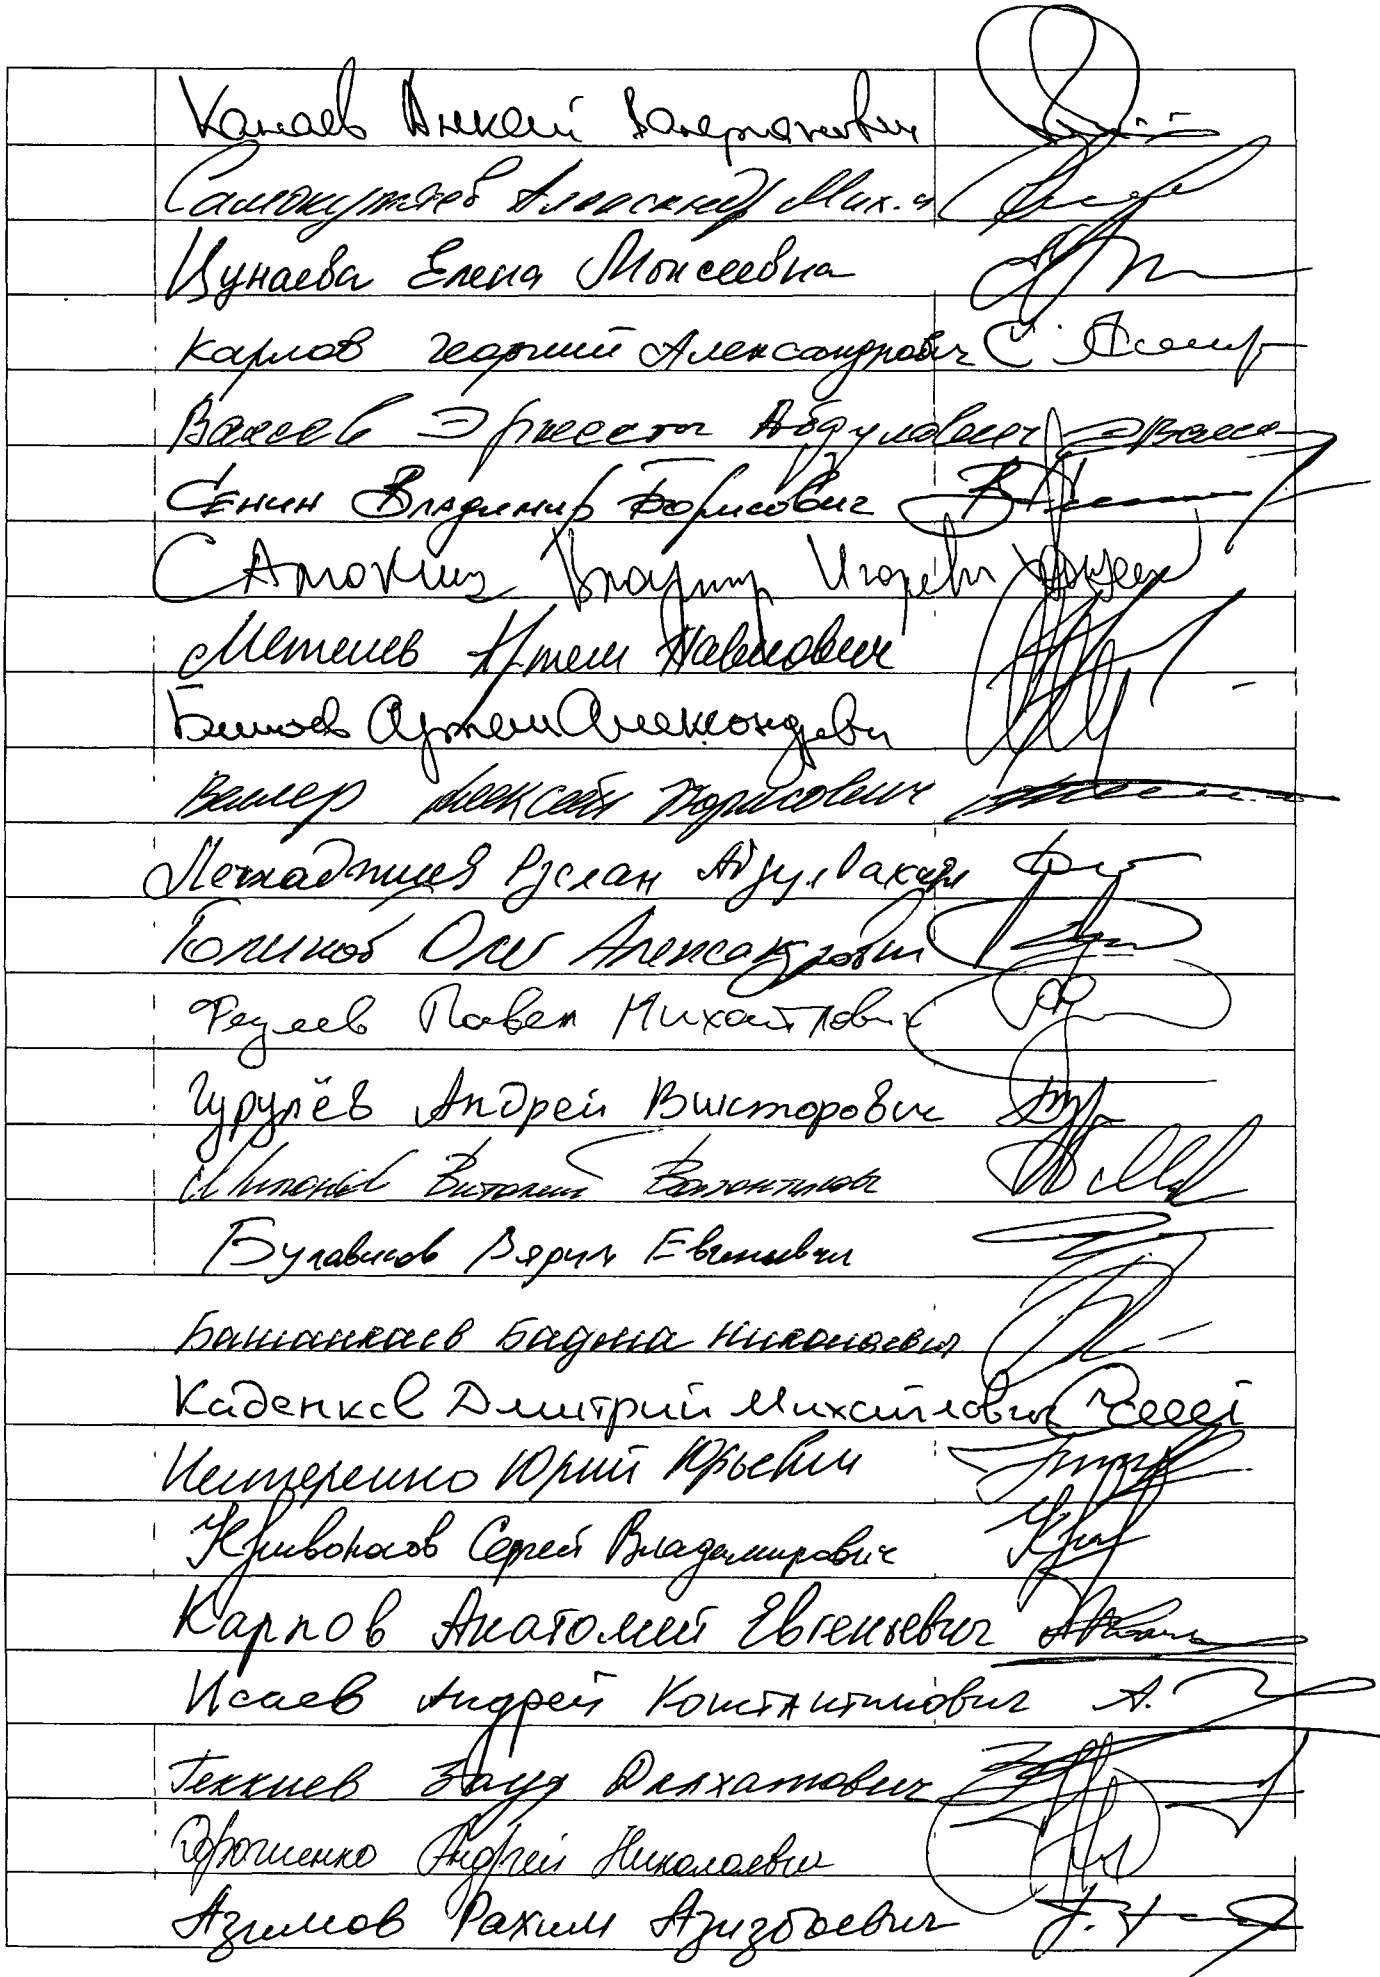 Канаев Алексей Валерианович
Самокутяев Александр Мих.
Цунаева Елена Моисеевна
Карлов Георгий Александрович
Валеев Эрнест Абдулович
Сенин Владимир Борисович
Самокиш Владимир Игоревич
Метелев Артем Павлович
Бичаев Артем Александрович
Веллер Алексей Борисович
Лечхаджиев Руслан Абдулвахаб
Голиков Олег Александрович
Федяев Павел Михайлович
Гурулёв Андрей Викторович
Милонов Виталий Валентинович
Булавинов Вадим Евгеньевич
Башанкаев Бадма Николаевич
Каденков Дмитрий Михайлович
Нестеренко Юрий Юрьевич
Кривоносов Сергей Владимирович
Карпов Анатолий Евгеньевич
Исаев Андрей Константинович А.
Геккиев Заур Далхатович
Дорошенко Андрей Николаевич
Азимов Рахим Азизбоевич